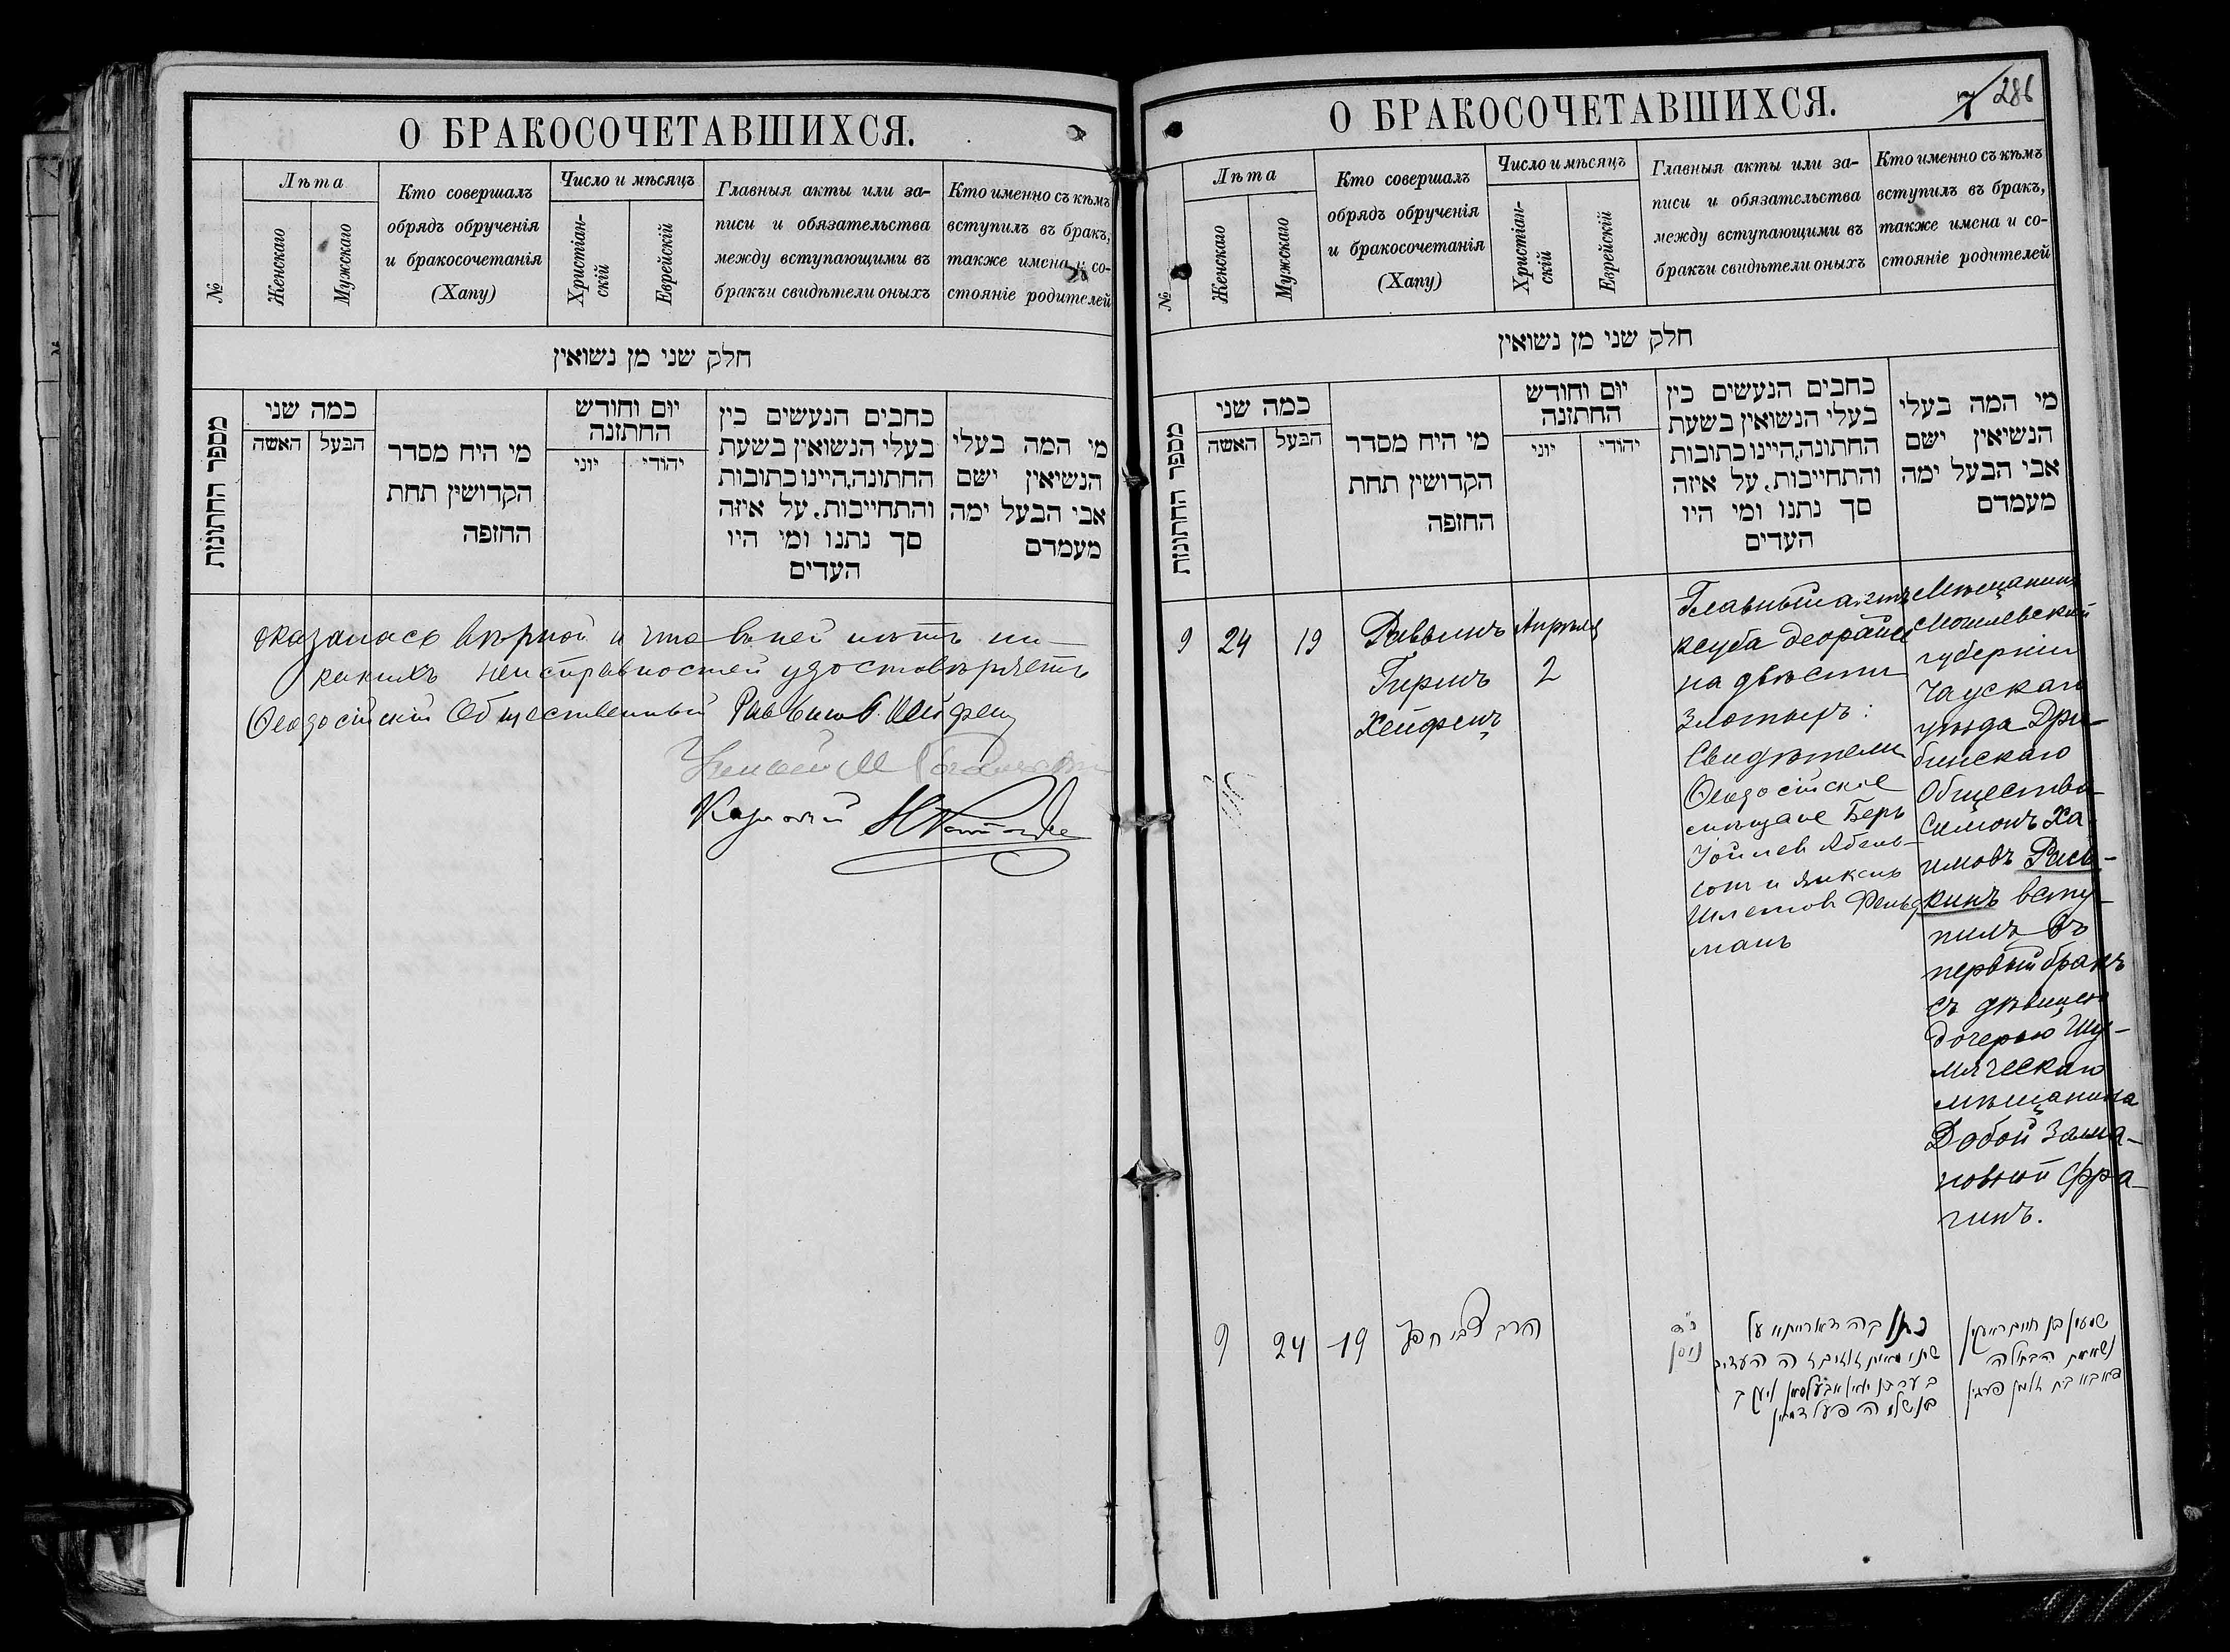 О БРАКОСОЧЕТАВШИХСЯ.
№
Лѣта
Женскаго
Мужскаго
Кто совершалъ
обрядъ обрученія
и бракосочетанія
(Хапу)
Число и мѣсяцъ
Христіан-
скій
Еврейскій
Главныя акты или за-
писи и обязательства
между вступающими въ
бракъ и свидѣтели оныхъ
Кто именно съ кѣмъ
вступилъ въ бракъ,
также имена и со-
стояніе родителей
חלק שני מן נשואין
מספר החתונות
כמה שני
האשה
הבעל
מי היח מסדר
הקדושין תחת
החזפה
יום וחודש
החתונה
יוני
יהודי
כחבים הנעשים כין
בעלי הנשואין בשעת
החתונה, היינו כתובות
והתחייבות, על איזה
סך נתנו ומי היו
העדים
מי המה בעלי
הנשיאין ישם
אבי הבעל ימה
מעמדם
оказалась вѣрной и что въ ней нѣтъ ни-
какихъ неисправностей удостовѣряетъ
Ѳеодосійскій Общественный Раввинъ
Казначей
О БРАКОСОЧЕТАВШИХСЯ.
7/286
№
Лѣта
Женскаго
Мужскаго
Кто совершалъ
обрядъ обрученія
и бракосочетанія
(Хапу)
Число и мѣсяцъ
Христіан-
скій
Еврейскій
Главныя акты или за-
писи и обязательства
между вступающими въ
бракъ и свидѣтели оныхъ
Кто именно съ кѣмъ
вступилъ въ бракъ,
также имена и со-
стояніе родителей
חלק שני מן נשואין
מספר החתונות
כמה שני
האשה
הבעל
מי היח מסדר
הקדושין תחת
החזפה
יום וחודש
החתזנה
יוני
יהודי
כחבים הנעשים כין
בעלי הנשואין בשעת
החתונה, היינו כתובות
והתחייבות, על איזה
סך נתנו ומי היו
העדים
מי המה בעלי
הנשיאין ישם
אבי הבעל ימה
מעמדם
9
24
19
Раввинъ
Гиршъ
Хейфецъ
Апрѣля
2
Главный актъ
кеуба деорайсе
на двѣсти
злотыхъ:
Свидѣтели
Ѳеодосійскіе
мѣщане Беръ
и
Шлемовъ Фельд
манъ
Мѣщанинъ
Могилевской
губерніи
Чаускаго
уѣзда Дри-
бинскаго
Общества
Симонъ Ха-
имовъ Рысь-
кинъ всту-
пилъ въ
первый бракъ
съ дѣвицею
дочерью Шу-
мяческаго
мѣщанина
Добой Залма-
новной Фра-
гинъ.
9
24
19
הרב צבי חפץ
כ״ב
ניסן
שמעון בן חיים
נשא את הבתולה
בת זלמן